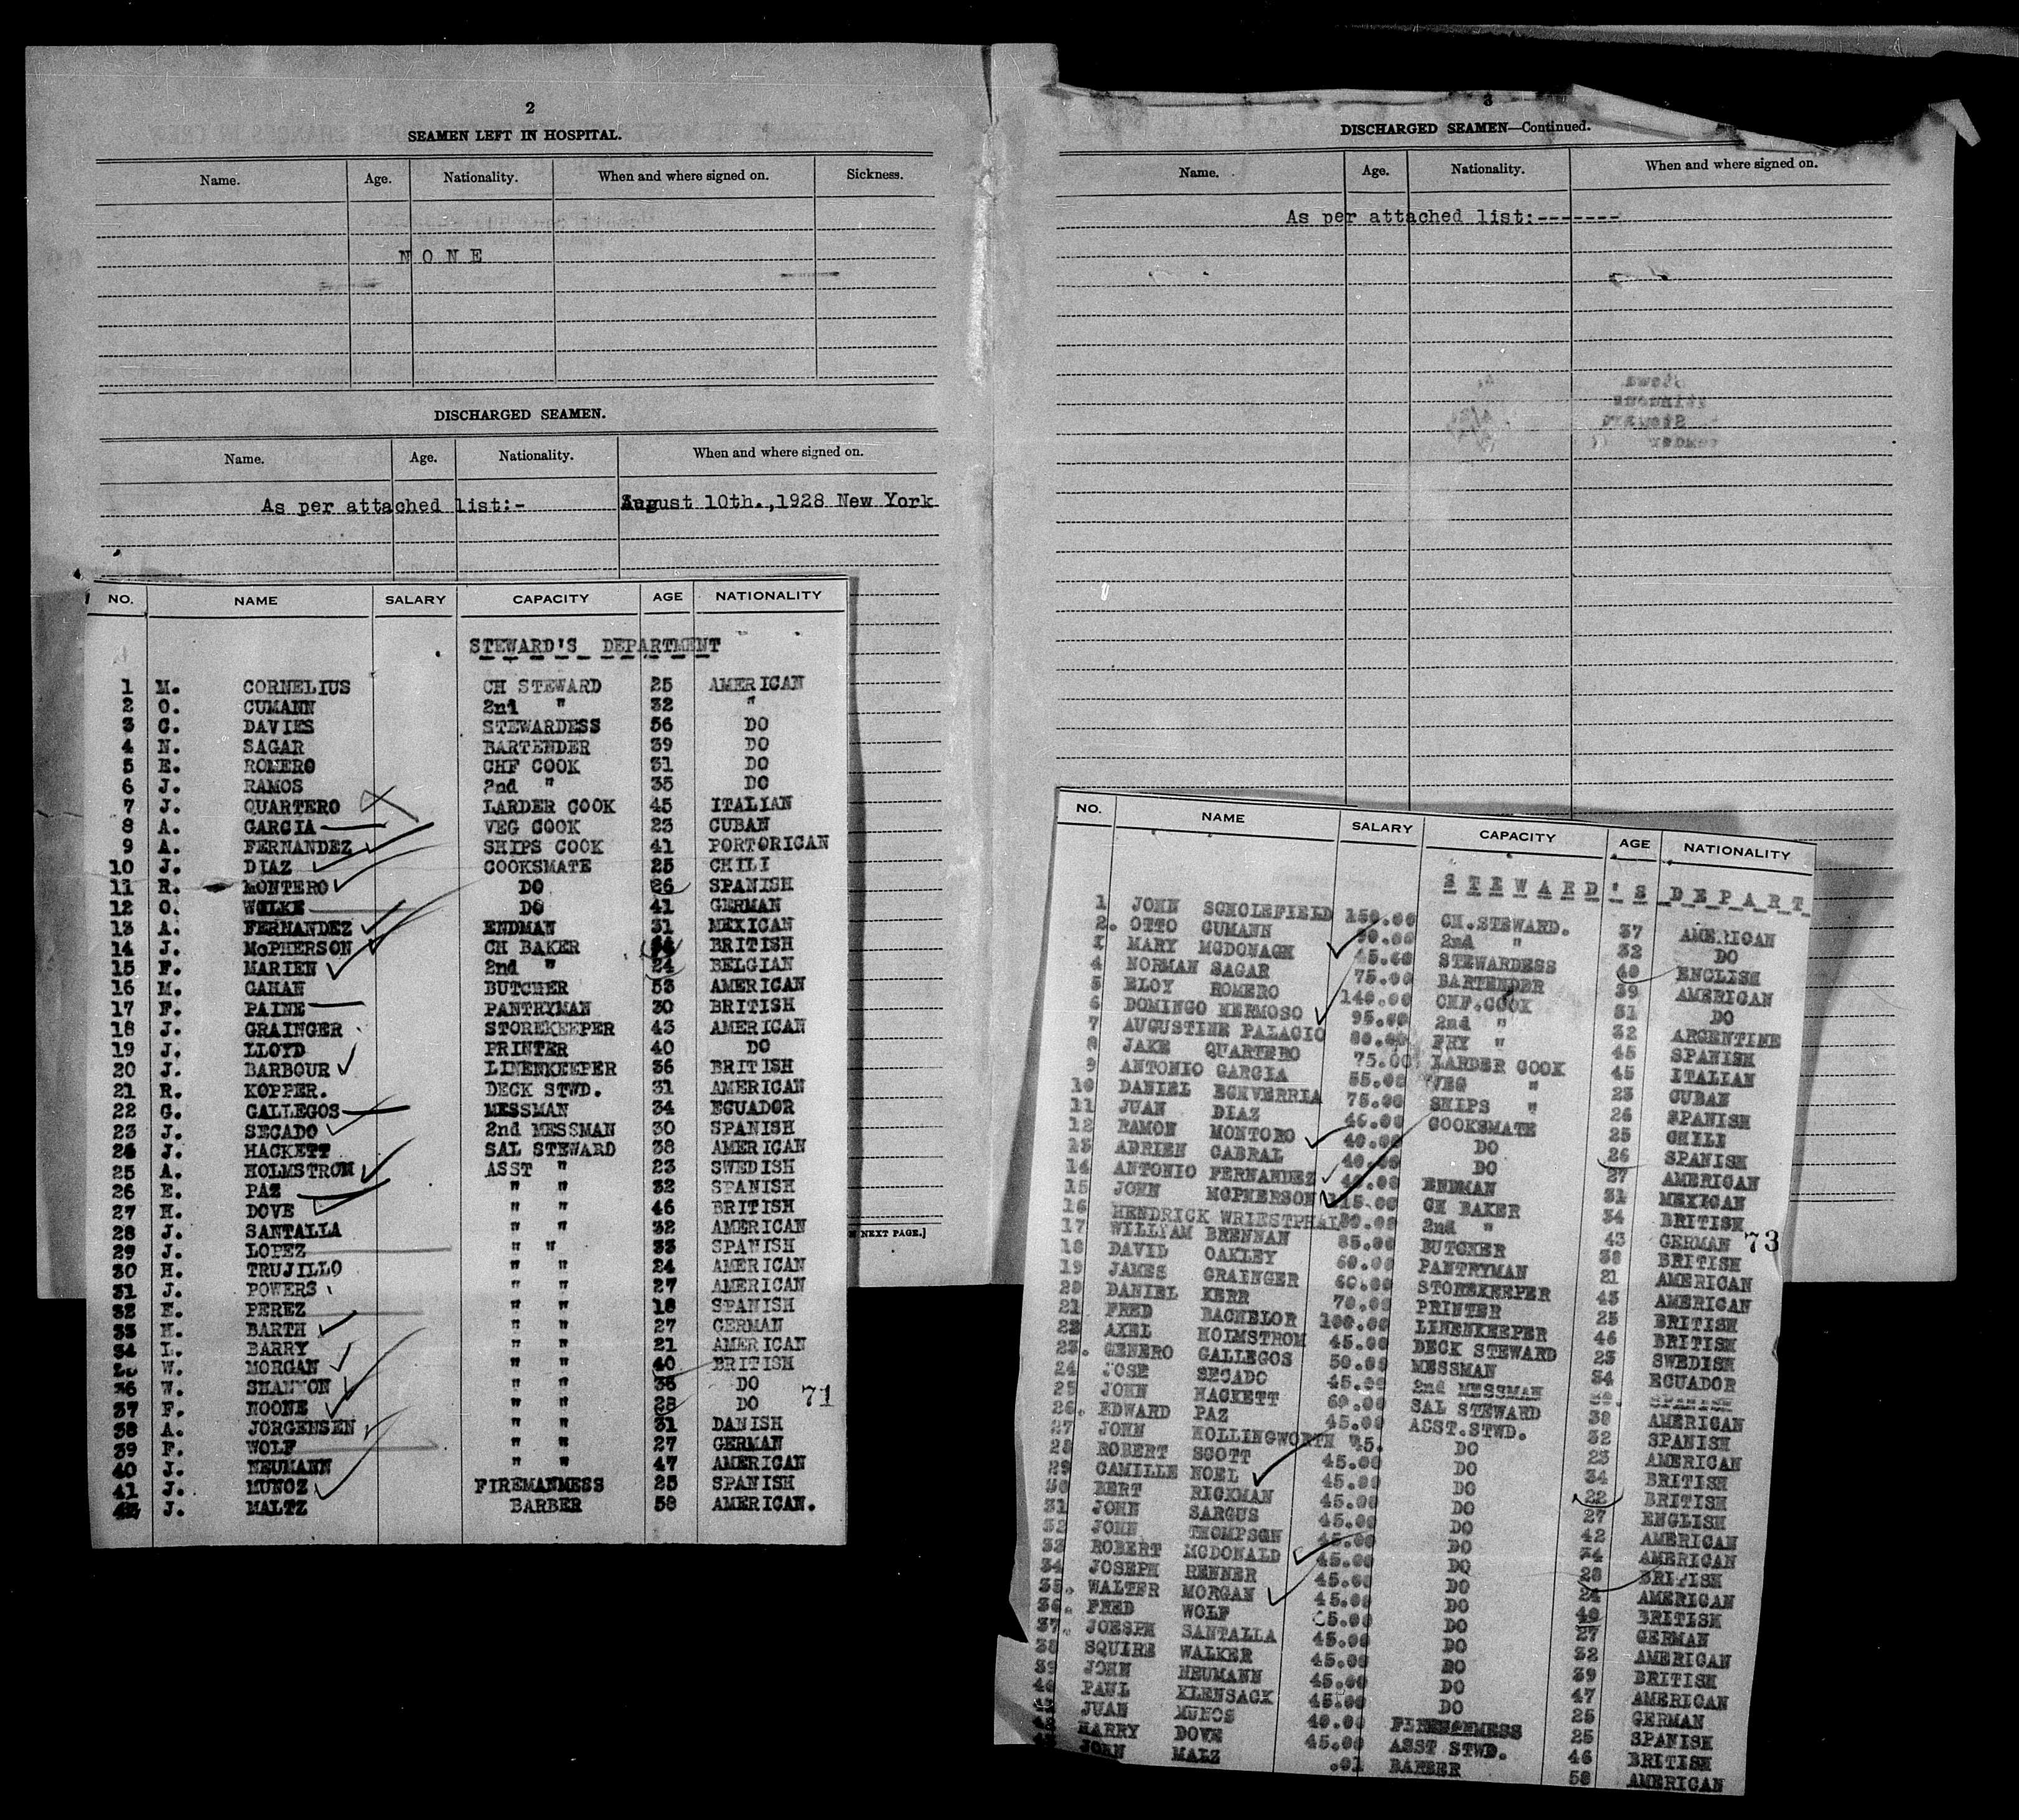 2
SEAMEN LEFT IN HOSPITAL.
Name. Age. Nationality. When and where signed on. Sickness.
NONE
DISCHARGED SEAMEN.
Name. Age. Nationality. When and where signed on.
As per attached list:- August 10th.,1928 New York
NO. NAME SALARY CAPACITY AGE NATIONALITY
STEWARD'S DEPARTMENT
1 M. CORNELIUS CH STEWARD 25 AMERICAN
2 O. CUMANN 2nd " 32 "
3 C. DAVIES STEWARDESS 56 DO
4 N. SAGAR BARTENDER 39 DO
5 E. ROMERO CHF COOK 31 DO
6 J. RAMOS 2nd " 35 DO
7 J. QUARTERO LARDER COOK 45 ITALIAN
8 A. GARCIA VEG COOK 23 CUBAN
9 A. FERNANDEZ SHIPS COOK 41 PORTORICAN
10 J. DIAZ COOKSMATE 25 CHILI
11 R. MONTERO DO 26 SPANISH
12 O. WOLKE DO 41 GERMAN
13 A. FERNANDEZ ENDMAN 31 MEXICAN
14 J. McPHERSON CH BAKER BRITISH
15 F. MARIEN 2nd " 24 BELGIAN
16 M. GAHAN BUTCHER 53 AMERICAN
17 F. PAINE PANTRYMAN 30 BRITISH
18 J. GRAINGER STOREKEEPER 43 AMERICAN
19 J. LLOYD PRINTER 40 DO
20 J. BARBOUR LINENKEEPER 36 BRITISH
21 R. KOPPER. DECK STWD. 31 AMERICAN
22 G. GALLEGOS MESSMAN 34 ECUADOR
23 J. SECADO 2nd MESSMAN 30 SPANISH
24 J. HACKETT SAL STEWARD 38 AMERICAN
25 A. HOLMSTROM ASST " 23 SWEDISH
26 E. PAZ " " 32 SPANISH
27 H. DOVE " " 46 BRITISH
28 J. SANTALLA " " 32 AMERICAN
29 J. LOPEZ " " 33 SPANISH
30 H. TRUJILLO " " 24 AMERICAN
31 J. POWERS " " 27 AMERICAN
32 E. PEREZ " " 18 SPANISH
33 H. BARTH " " 27 GERMAN
34 L. BARRY " " 21 AMERICAN
W. MORGAN " " 40 BRITISH
36 W. SHANNON " " 36 DO
37 F. NOONE " " 28 DO
38 A. JORGENSEN " " 31 DANISH
39 F. WOLF " " 27 GERMAN
40 J. NEUMANN " " 47 AMERICAN
41 J. MUNOZ FIREMANMESS 25 SPANISH
42 J. MALTZ BARBER 58 AMERICAN.
71
NEXT PAGE.]
3
DISCHARGED SEAMEN—Continued.
Name. Age. Nationality. When and where signed on.
As per attached list:-------
NO. NAME SALARY CAPACITY AGE NATIONALITY
STEWARD'S DEPART
1 JOHN SCHOLEFIELD 150.00 CH.STEWARD. 37 AMERICAN
2. OTTO CUMANN 90.00 2nd " 32 DO
MARY MCDONAGH 45.00 STEWARDESS 40 ENGLISH
4 NORMAN SAGAR 75.00 BARTENDER 39 AMERICAN
5 ELOY ROMERO 140.00 CHF.COOK 31 DO
6 DOMINGO HERMOSO 95.00 2nd " 32 ARGENTINE
7 AUGUSTINE PALACIO 80.00 FRY " 45 SPANISH
8 JAKE QUARTERO 75.00 LARDER COOK 45 ITALIAN
9 ANTONIO GARCIA 55.00 VEG " 23 CUBAN
10 DANIEL ECHVERRIA 75.00 SHIPS " 26 SPANISH
11 JUAN DIAZ 40.00 COOKSMATE 25 CHILI
12 RAMON MONTORO 40.00 DO 26 SPANISH
13 ADRIEN CABRAL 40.00 DO 27 AMERICAN
14 ANTONIO FERNANDEZ 40.00 ENDMAN 31 MEXICAN
15 JOHN MCPHERSON 115.00 CH BAKER 34 BRITISH
16 HENDRICK WRIESTPHAL 80.00 2nd " 43 GERMAN
17 WILLYAM BRENNAN 85.00 BUTCHER 38 BRITISH
18 DAVID OAKLEY 60.00 PANTRYMAN 21 AMERICAN
19 JAMES GRAINGER 60.00 STOREKEEPER 43 AMERICAN
20 DANIEL KERR 70.00 PRINTER 23 BRITISH
21 FRED BACHELOR 100.00 LINENKEEPER 46 BRITISH
22 AXEL HOLMSTROM 45.00 DECK STEWARD 23 SWEDISH
23. GENERO GALLEGOS 50.00 MESSMAN 34 ECUADOR
24 JOSE SECADO 45.00 2nd MESSMAN 30. SPANISH
25 JOHN HACKETT 60.00 SAL STEWARD 38 AMERICAN
26. EDWARD PAZ 45.00 ASST.STWD. 32 SPANISH
27 JOHN HOLLINGWORTH 45. DO 23 AMERICAN
28 ROBERT SCOTT 45.00 DO 34 BRITISH
29 CAMILLE NOEL 45.00 DO 22 BRITISH
30 BERT RICKMAN 45.00 DO 27 ENGLISH
31 JOHN SARGUS 45.00 DO 42 AMERICAN
32 JOHN THOMPSON 45.00 DO 34 AMERICAN
33 ROBERT MCDONALD 45.00 DO 28 BRITISH
34 JOSEPH RENNER 45.00 DO 24 AMERICAN
35. WALTER MORGAN 45.00 DO 40 BRITISH
36. FRED WOLF 45.00 DO 27 GERMAN
37. JOESPH SANTALLA 45.00 DO 32 AMERICAN
38 SQUIRE WALKER 45.00 DO 39 BRITISH
39 JOHN NEUMANN 45.00 DO 47 AMERICAN
40 PAUL KLENSACK 45.00 DO 25 GERMAN
JUAN MUNOS 40.00 FIREMANMESS 25 SPANISH
HARRY DOVE 45.00 ASST STWD. 46 BRITISH
JOHN MALZ .01 BARBER 58 AMERICAN
73